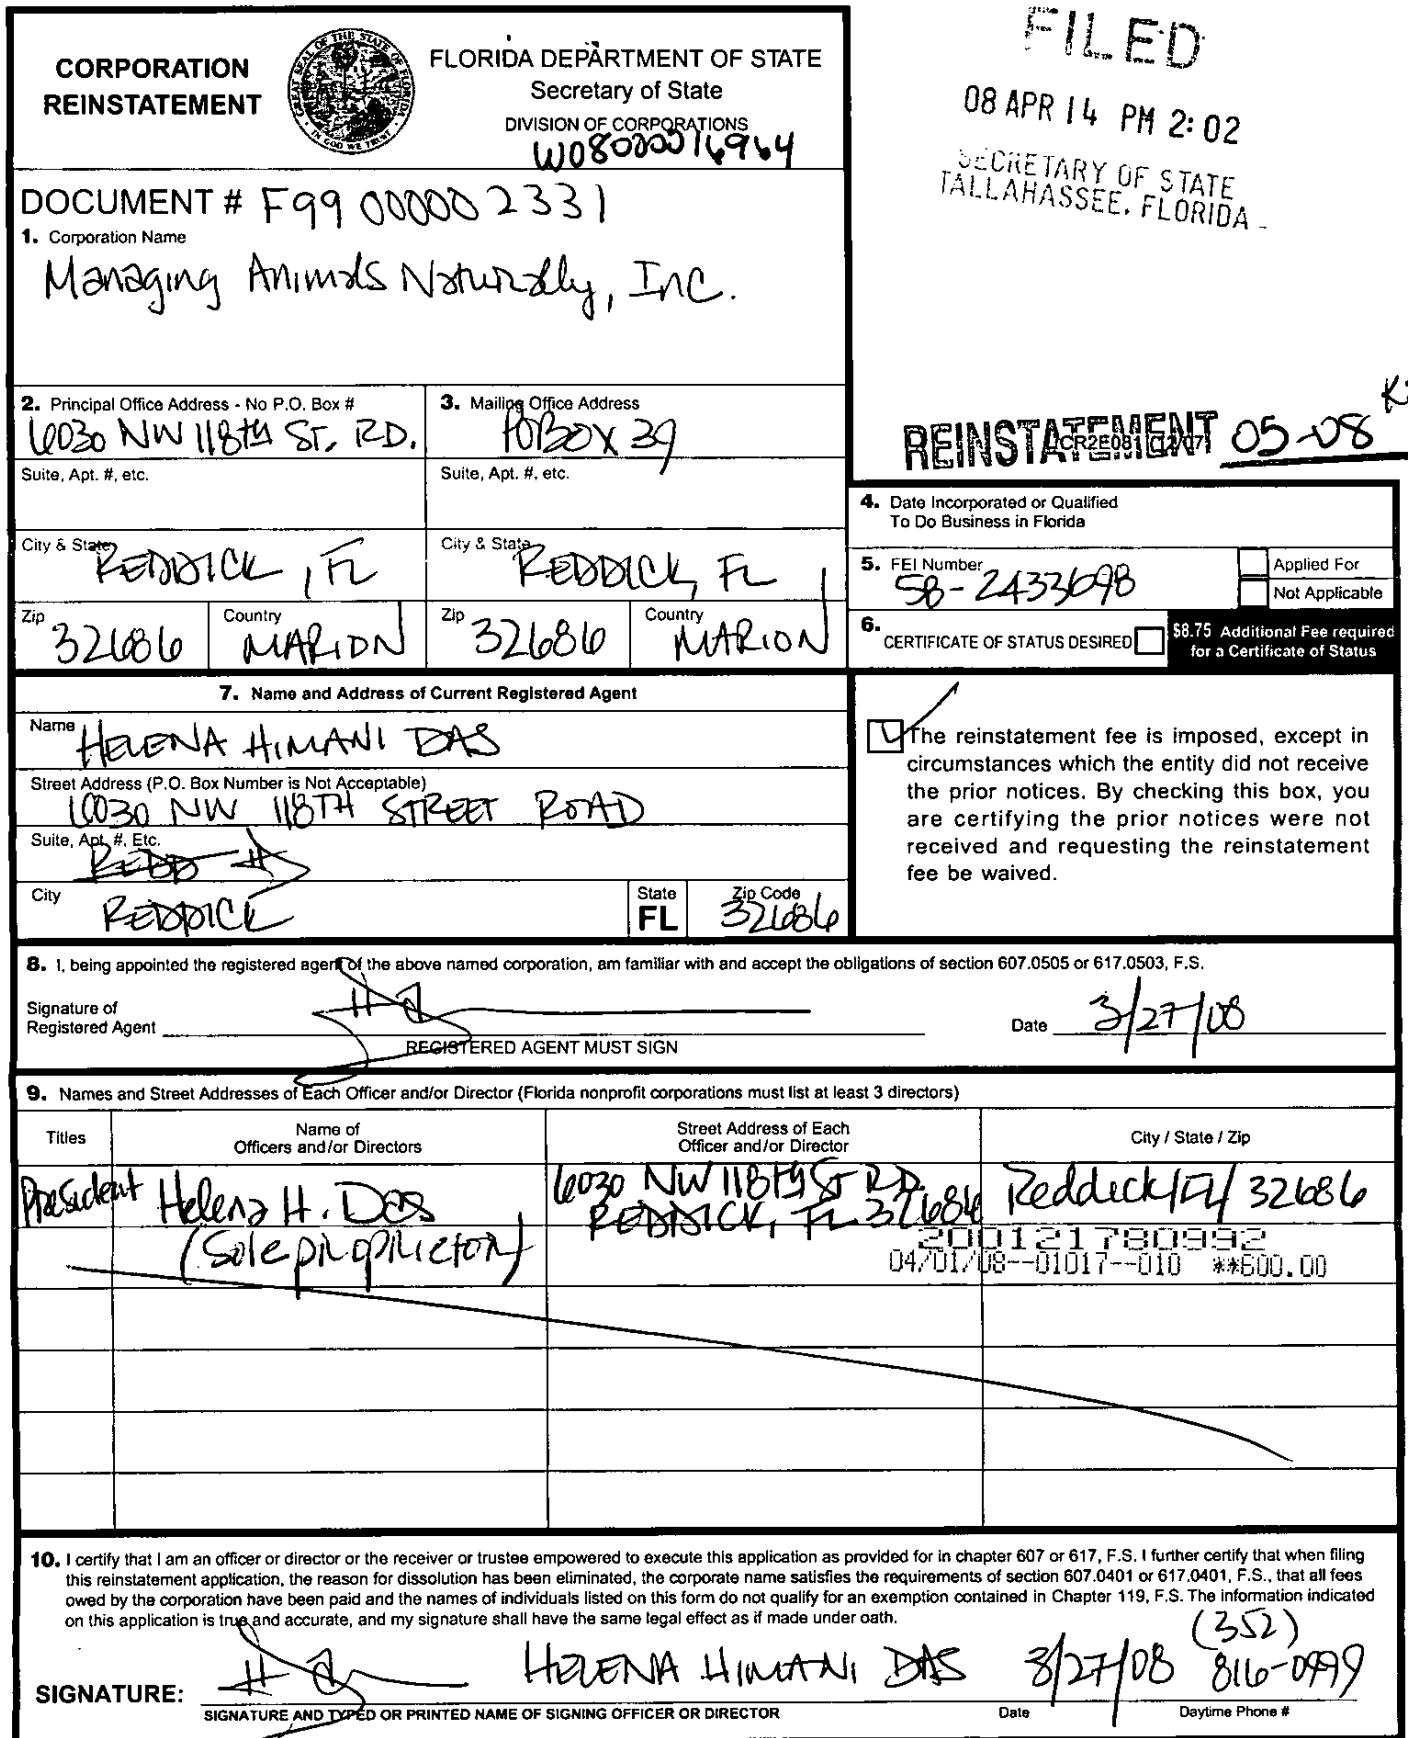 CORPORATION
REINSTATEMENT
GREAT SEAL OF THE STATE OF FLORIDA
IN GOD WE TRUST
FLORIDA DEPARTMENT OF STATE
Secretary of State
DIVISION OF CORPORATIONS
W08000016964
FILED
08 APR 14 PM 2:02
SECRETARY OF STATE
TALLAHASSEE, FLORIDA
DOCUMENT # F99000002331
1. Corporation Name
Managing Animals Naturally, Inc.
2. Principal Office Address - No P.O. Box #
6030 NW 118th ST. RD.
3. Mailing Office Address
PO BOX 39
REINSTATEMENT 05-08
CR2E081 (12/07)
Suite, Apt. #, etc.
Suite, Apt. #, etc.
City & State
REDDICK, FL
City & State
REDDICK, FL
Zip
32686
Country
MARION
Zip
32686
Country
MARION
4. Date Incorporated or Qualified
To Do Business in Florida
5. FEI Number
58-2433698
Applied For
Not Applicable
6. CERTIFICATE OF STATUS DESIRED
$8.75 Additional Fee required
for a Certificate of Status
7. Name and Address of Current Registered Agent
Name
HELENA HIMANI DAS
Street Address (P.O. Box Number is Not Acceptable)
6030 NW 118TH STREET ROAD
Suite, Apt. #, Etc.
REDD
City
REDDICK
State
FL
Zip Code
32686
The reinstatement fee is imposed, except in
circumstances which the entity did not receive
the prior notices. By checking this box, you
are certifying the prior notices were not
received and requesting the reinstatement
fee be waived.
8. I, being appointed the registered agent of the above named corporation, am familiar with and accept the obligations of section 607.0505 or 617.0503, F.S.
Signature of
Registered Agent
REGISTERED AGENT MUST SIGN
Date 3/27/08
9. Names and Street Addresses of Each Officer and/or Director (Florida nonprofit corporations must list at least 3 directors)
Titles
Name of
Officers and/or Directors
Street Address of Each
Officer and/or Director
City / State / Zip
President
Helena H. Das
(Sole proprietor)
6030 NW 118th St RD.
REDDICK, FL 32686
Reddick/FL/32686
200121780992
04/01/08--01017--010 **600.00
10. I certify that I am an officer or director or the receiver or trustee empowered to execute this application as provided for in chapter 607 or 617, F.S. I further certify that when filing
this reinstatement application, the reason for dissolution has been eliminated, the corporate name satisfies the requirements of section 607.0401 or 617.0401, F.S., that all fees
owed by the corporation have been paid and the names of individuals listed on this form do not qualify for an exemption contained in Chapter 119, F.S. The information indicated
on this application is true and accurate, and my signature shall have the same legal effect as if made under oath.
SIGNATURE:
HELENA HIMANI DAS 3/27/08 (352)
816-0999
SIGNATURE AND TYPED OR PRINTED NAME OF SIGNING OFFICER OR DIRECTOR
Date
Daytime Phone #